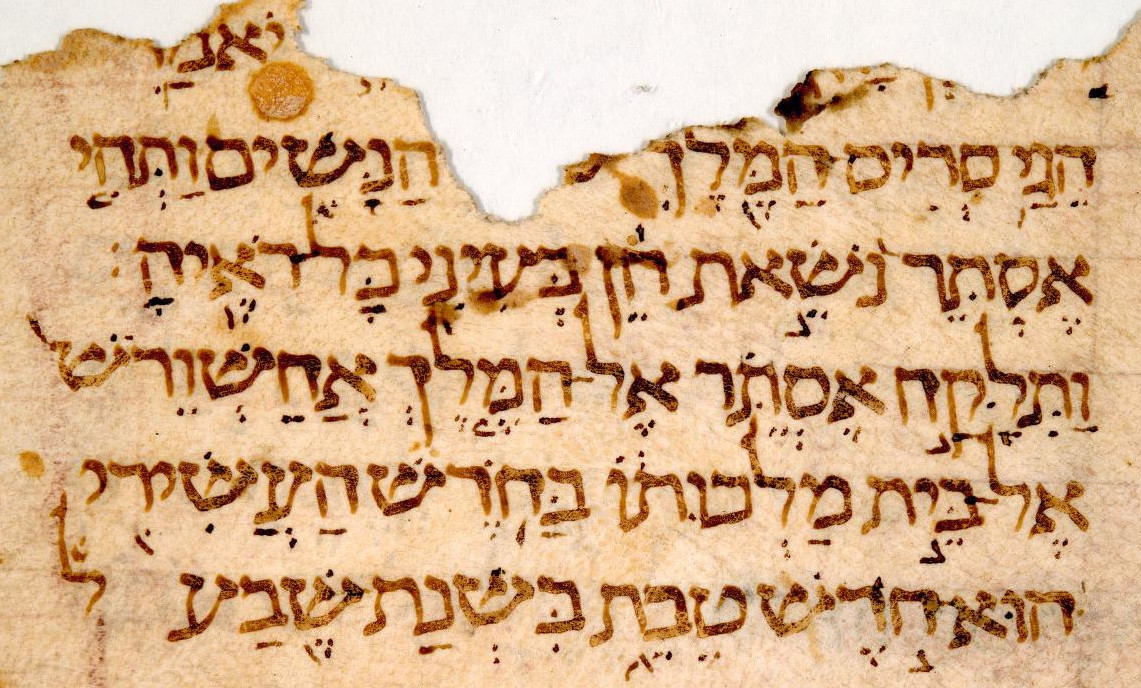 יֹאמַר
הֵגַי סְרִיס הַמֶּלֶךְ הַנָּשִׁים וַתְּהִי
אֶסְתֵּר נֹשֵׂאת חֵן בְּעֵינֵי כָּל רֹאֶיהָ׃
וַתִּלָּקַח אֶסְתֵּר אֶל הַמֶּלֶךְ אֲחַשְׁוֵרוֹשׁ
אֶל בֵּית מַלְכוּתוֹ בַּחֹדֶשׁ הָעֲשִׂירִי
הוּא חֹדֶשׁ טֵבֵת בִּשְׁנַת שֶׁבַע